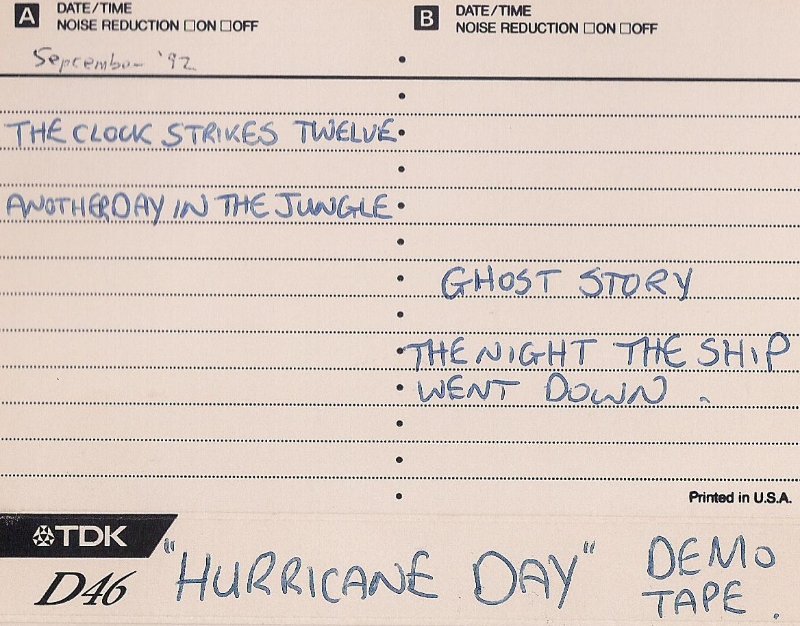 A DATE/TIME
NOISE REDUCTION □ON □OFF
September '92
THE CLOCK STRIKES TWELVE
ANOTHER DAY IN THE JUNGLE
B DATE/TIME
NOISE REDUCTION □ON □OFF
GHOST STORY
THE NIGHT THE SHIP
WENT DOWN.
Printed in U.S.A.
TDK
D46
"HURRICANE DAY"
DEMO
TAPE.